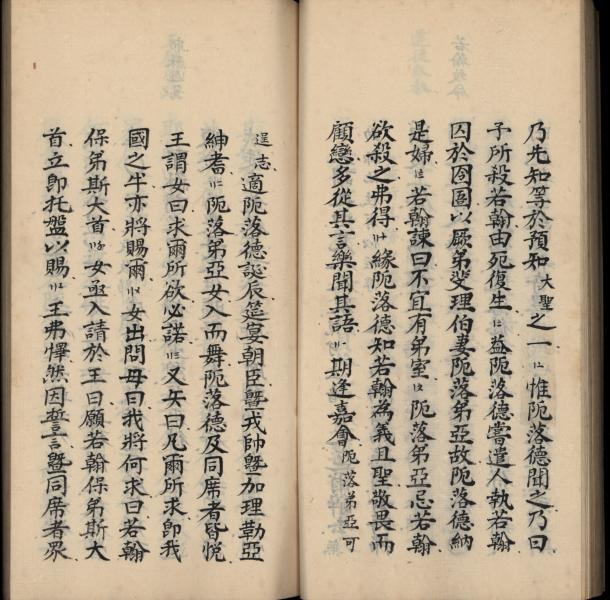 乃先知等於預知大聖之一惟阨落德聞之乃曰
予所殺若翰由死復生盖阨落德嘗遣人執若翰
囚於囹圄以厥弟斐理伯妻阨落弟亞故阨落德納
是婦若翰諫曰不宜有弟室阨落弟亞忌若翰
欲殺之弗得緣阨落德知若翰為義且聖敬畏而
顧戀多從其言樂聞其語期逢嘉會阨落弟亞可
逞志適阨落德誕辰筵宴朝臣曁戎帥曁加理勒亞
紳耆阨落弟亞女入而舞阨落德及同席者皆悅
王謂女曰求爾所欲必諾又矢曰凡爾所求即我
國之半亦將賜爾女出問母曰我將何求曰若翰
保弟斯大首女亟入請於王曰願若翰保弟斯大
首立即托盤以賜王弗懌然因誓言曁同席者眾